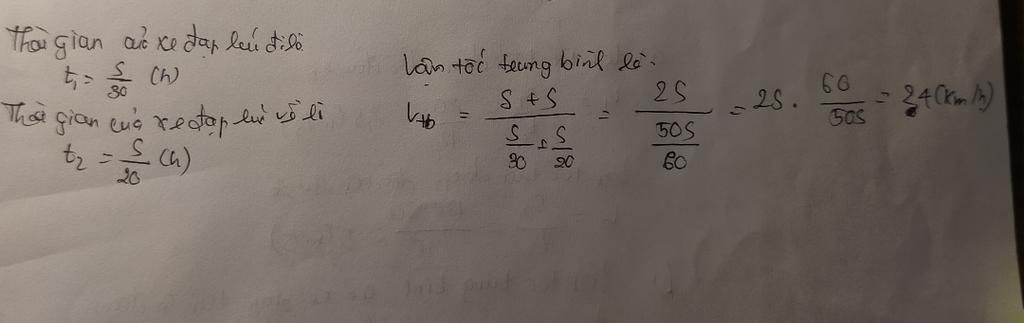 Thời gian của xe đạp lúc đi là
t₁ = S/30 (h)
Thời gian của xe đạp lúc về là
t₂ = S/20 (h)
Vận tốc trung bình là.
Vtb = (S + S)/(S/30 + S/20) = 2S/(50S/60) = 2S . 60/50S = 24 (km/h)